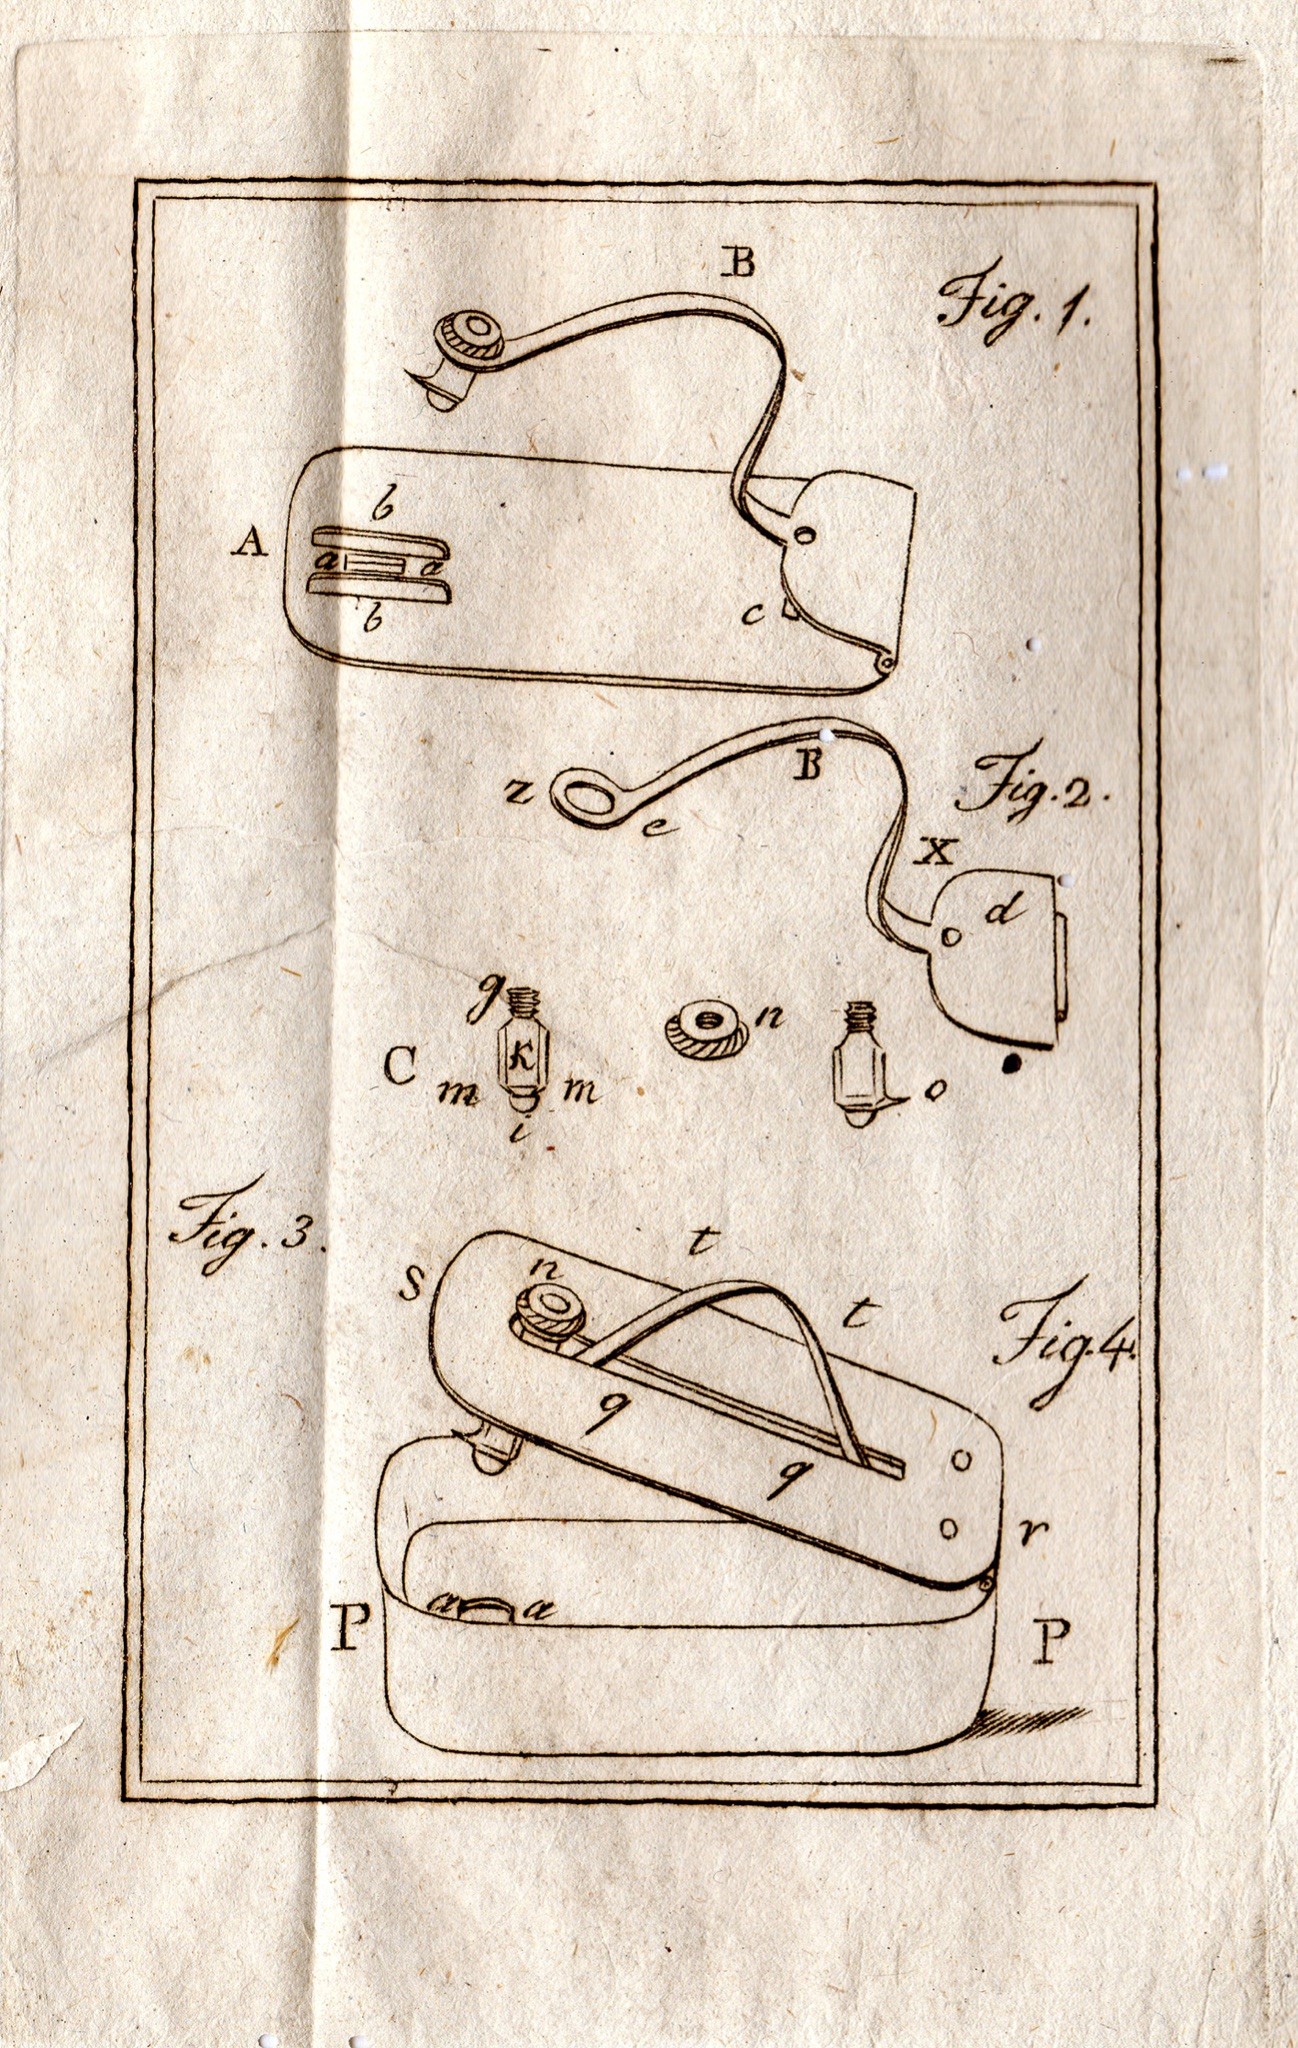 B
Fig. 1.
b
A
a a
b
c
B
Fig. 2.
z
e
X
d
g
n
C
K
m m
o
i
Fig. 3.
t
s
n
t
Fig. 4.
q
q
r
a a
P
P